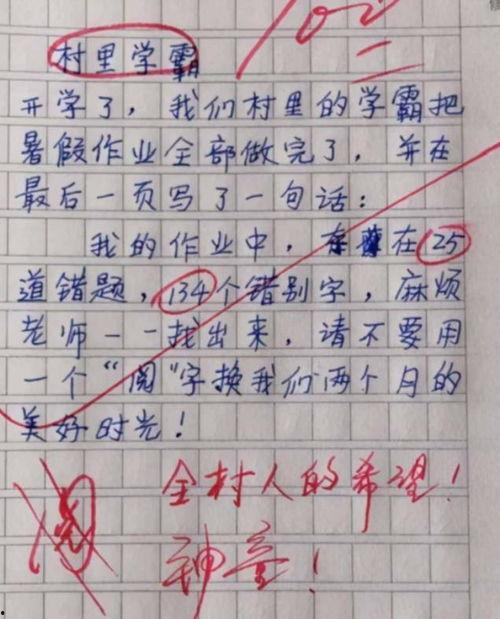 100
村里学霸
开学了，我们村里的学霸把
暑假作业全部做完了，并在
最后一页写了一句话：
我的作业中，存在25
道错题，134个错别字，麻烦
老师一一找出来，请不要用
一个“阅”字换我们两个月的
美好时光！
阅
全村人的希望！
神童！